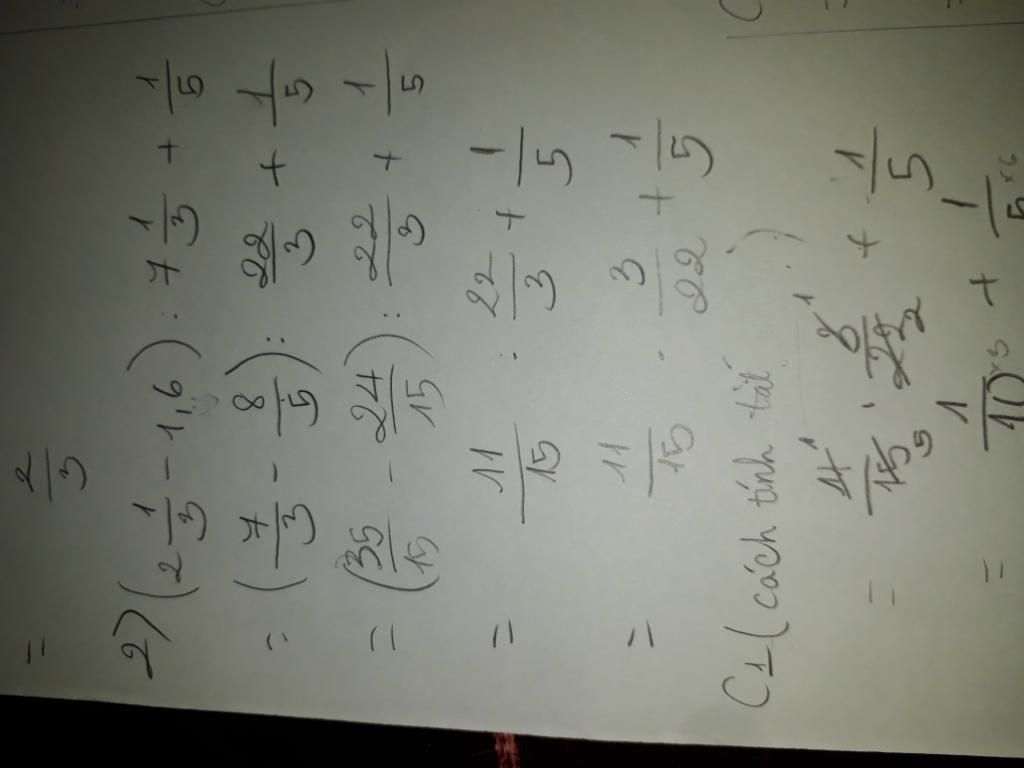 = 2/3
2) (2 1/3 - 1,6) : 7 1/3 + 1/5
= (7/3 - 8/5) : 22/3 + 1/5
= (35/15 - 24/15) : 22/3 + 1/5
= 11/15 : 22/3 + 1/5
= 11/15 . 3/22 + 1/5
C1 (cách tính tắt)
= 11 1/15 5 . 3 1/22 2 + 1/5
= 1/10 x3 + 1/5